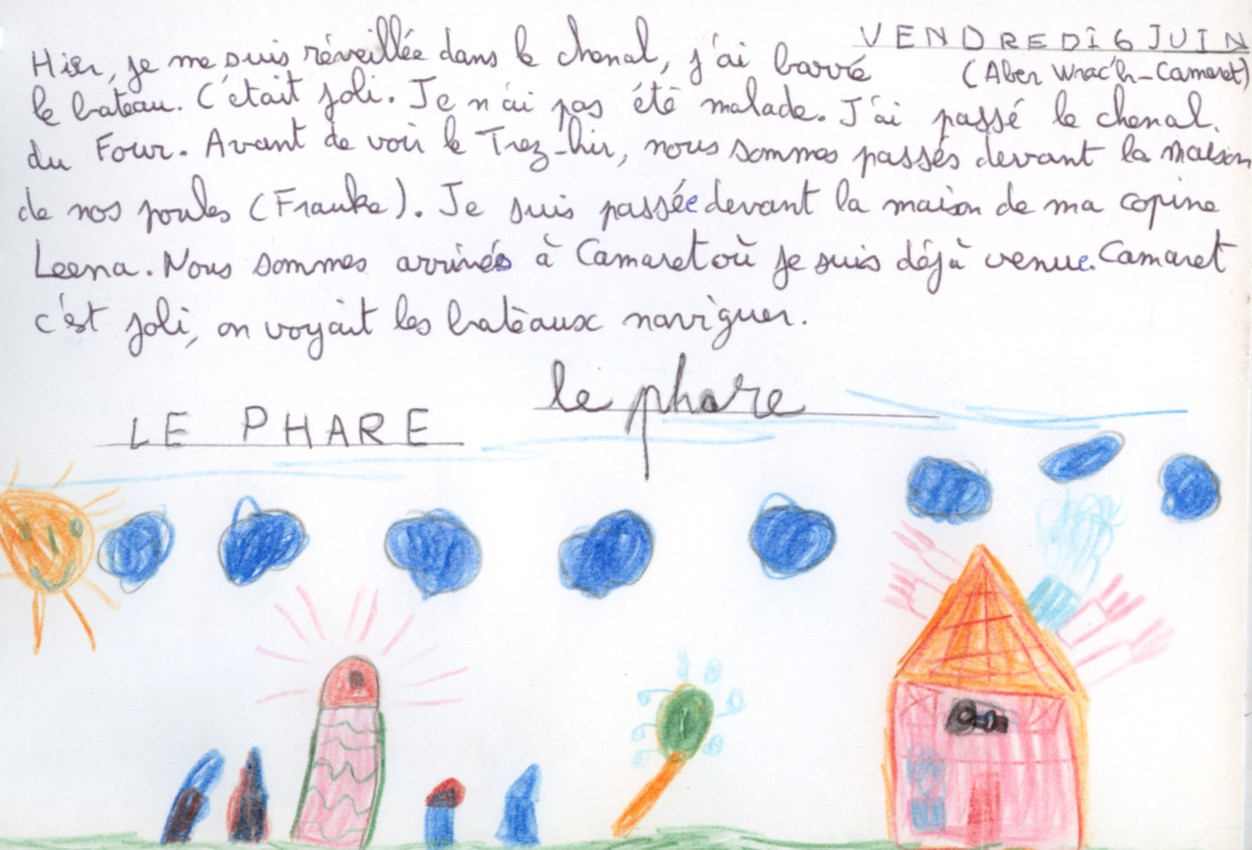 VENDREDI 6 JUIN
(Aber Wrac'h-Camaret)
Hier, je me suis réveillée dans le chenal, j'ai barré
le bateau. C'était joli. Je n'ai pas été malade. J'ai passé le chenal.
du Four. Avant de voir le Trez-hir, nous sommes passés devant la maison
de nos poules (Franke). Je suis passée devant la maison de ma copine
Leena. Nous sommes arrivés à Camaret où je suis déjà venue. Camaret
c'est joli, on voyait les batèaux naviguer.
le phare
LE PHARE